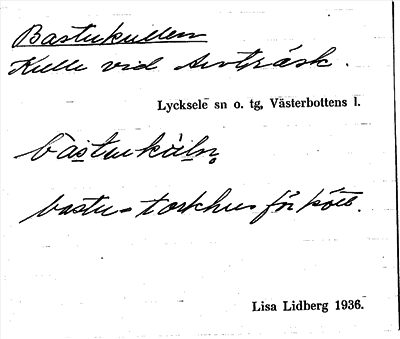 Bastukullen
Kulle vid Avträsk.
Lycksele sn o. tg, Västerbottens l.
bastukuln
bastu = torkhus för kött.
Lisa Lidberg 1936.